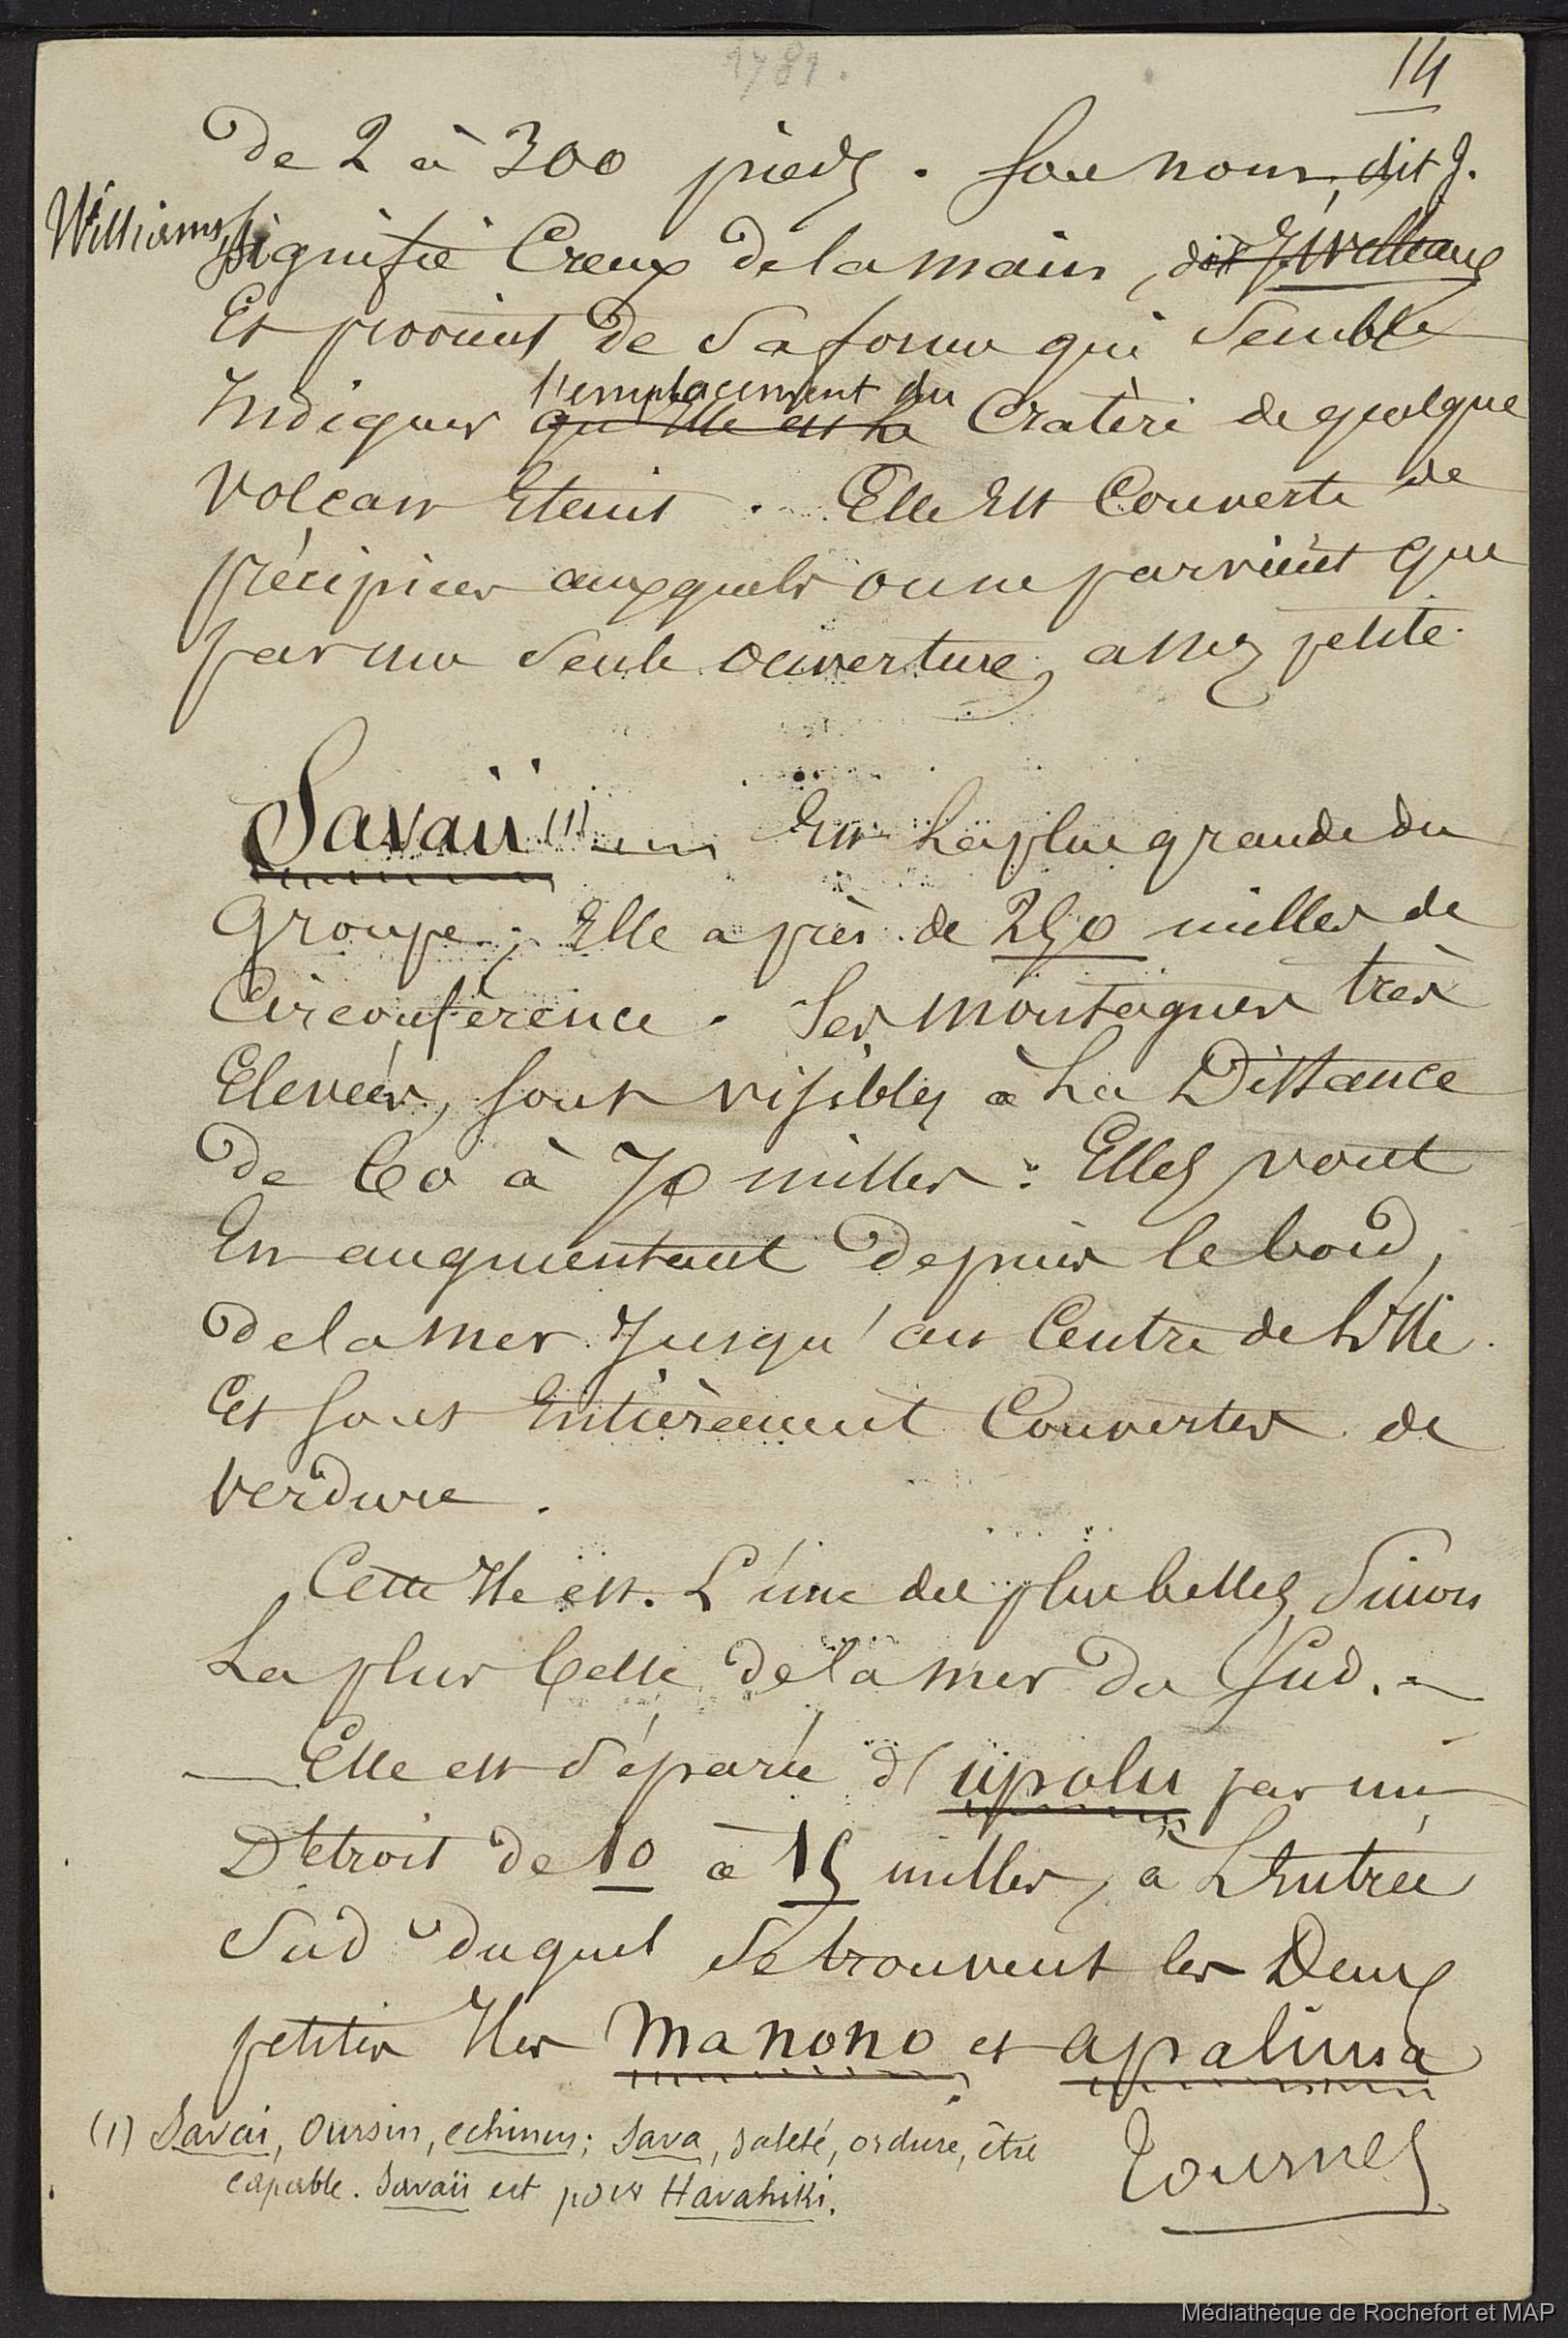 1781.
14
de 2 à 300 pieds. Son nom, dit J.
Williams, signifie Creux de la main, dit J. Williams
Et provient de Sa forme qui Semble
Indiquer qu'Elle est le l'emplacement du Cratère de quelque
Volcan Eteint. Elle Est Couverte de
précipices auxquels on ne parvient que
par une Seule ouverture, assez petite.
Savaïi (1) Est la plus grande du
Groupe; Elle a près de 250 milles de
Circonférence. Ses montagnes très
Elevées, sont visibles à la Distance
de 60 à 70 milles: Elles vont
En augmentant depuis le bord,
de la mer Jusqu'au Centre de l'Ile
Et sont Entièrement Couvertes de
verdure.
Cette Ile est L'une des plus belles, Sinon
La plus belle de la mer du Sud.
Elle est Séparée d'upolu par un
Détroit de 10 à 15 milles, à L'Entrée
Sud duquel Se trouvent les Deux
petites Iles manono et apalima
(1) Savai, Oursin, echinus; Sava, saleté, ordure, être
capable. Savaïi est pour Havahiki.
Tournez
Médiathèque de Rochefort et MAP